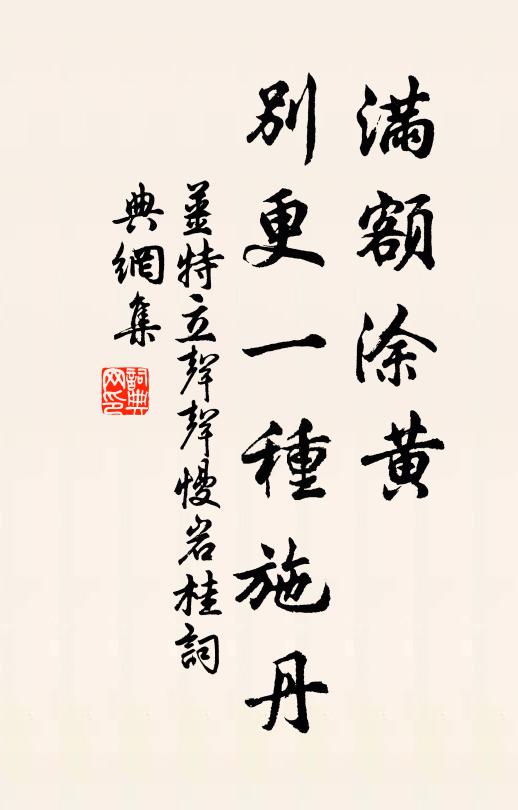 滿額涂黃
別更一種施丹
姜特立聲聲慢岩桂詞
典網集
詞典网印